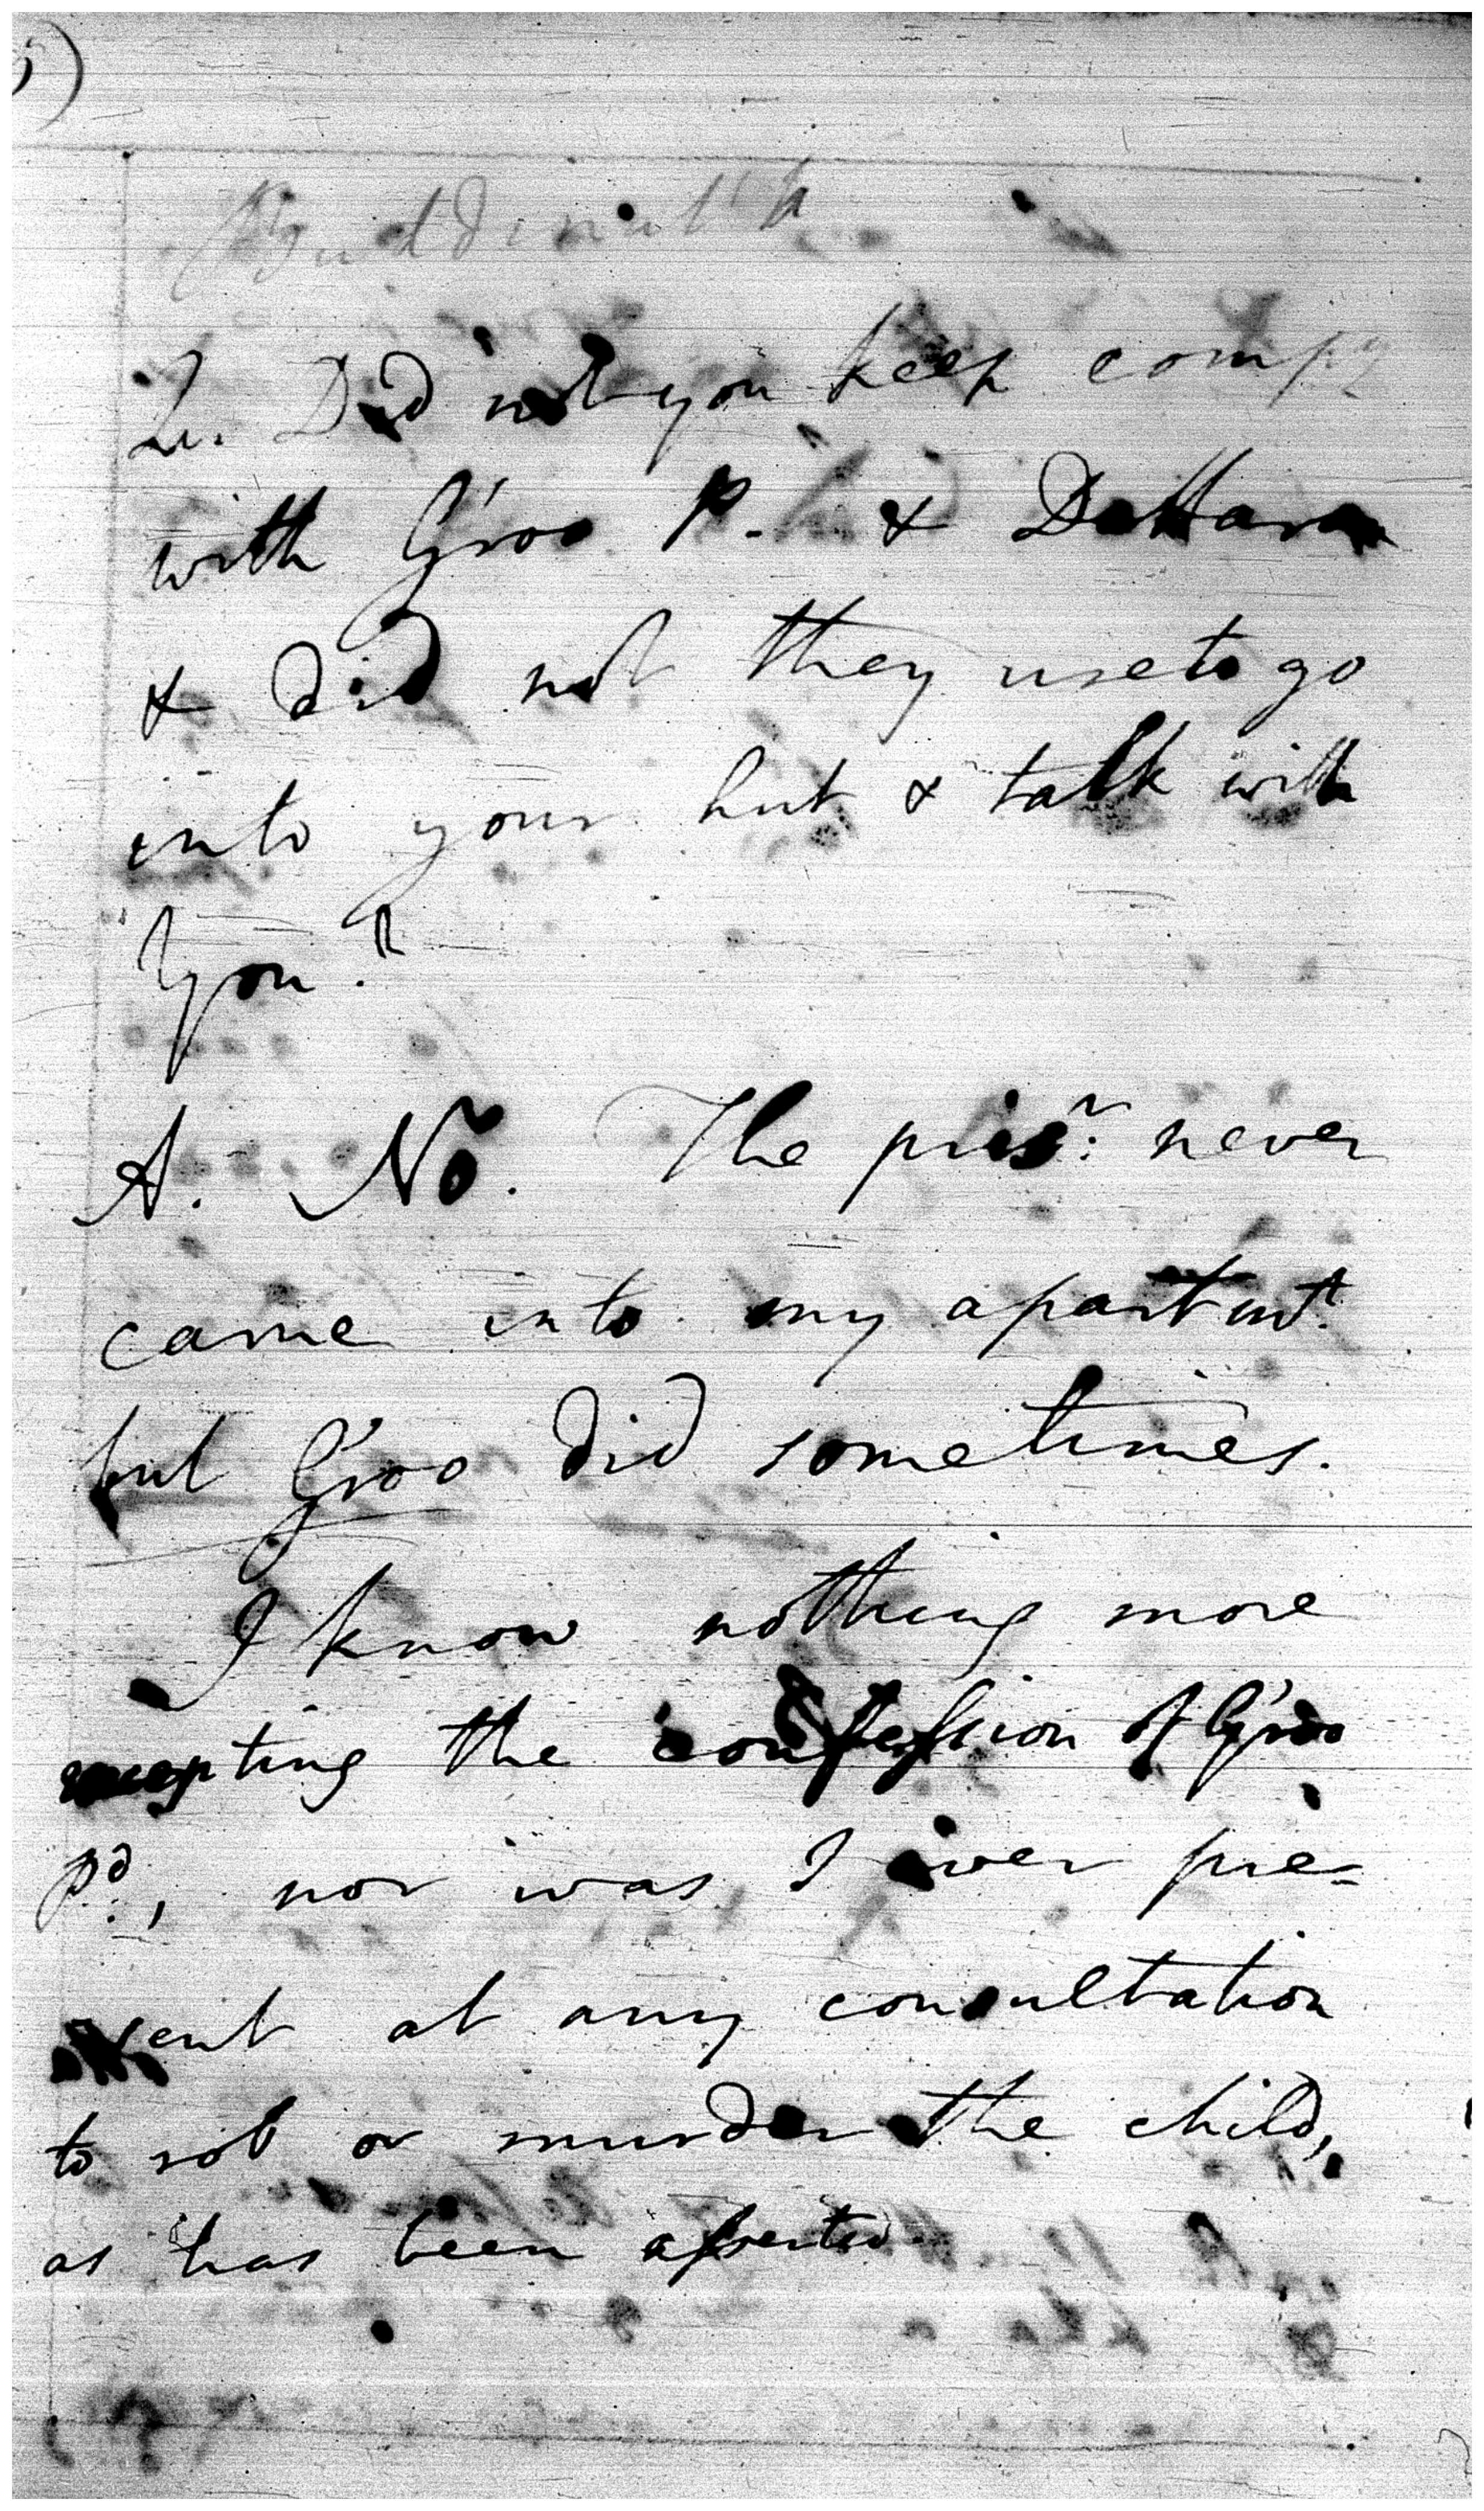 Qu. Did not you keep compy
with G'roo P. & DeHara
& did not they use to go
into your hut & talk with
you?
A. No. The prisr. never
came into my apartmt.
but G'roo did sometimes.
I know nothing more
excepting the confession of G'roo
Pd., nor was I ever pre=
sent at any consultation
to rob or murder the child,
as has been asserted